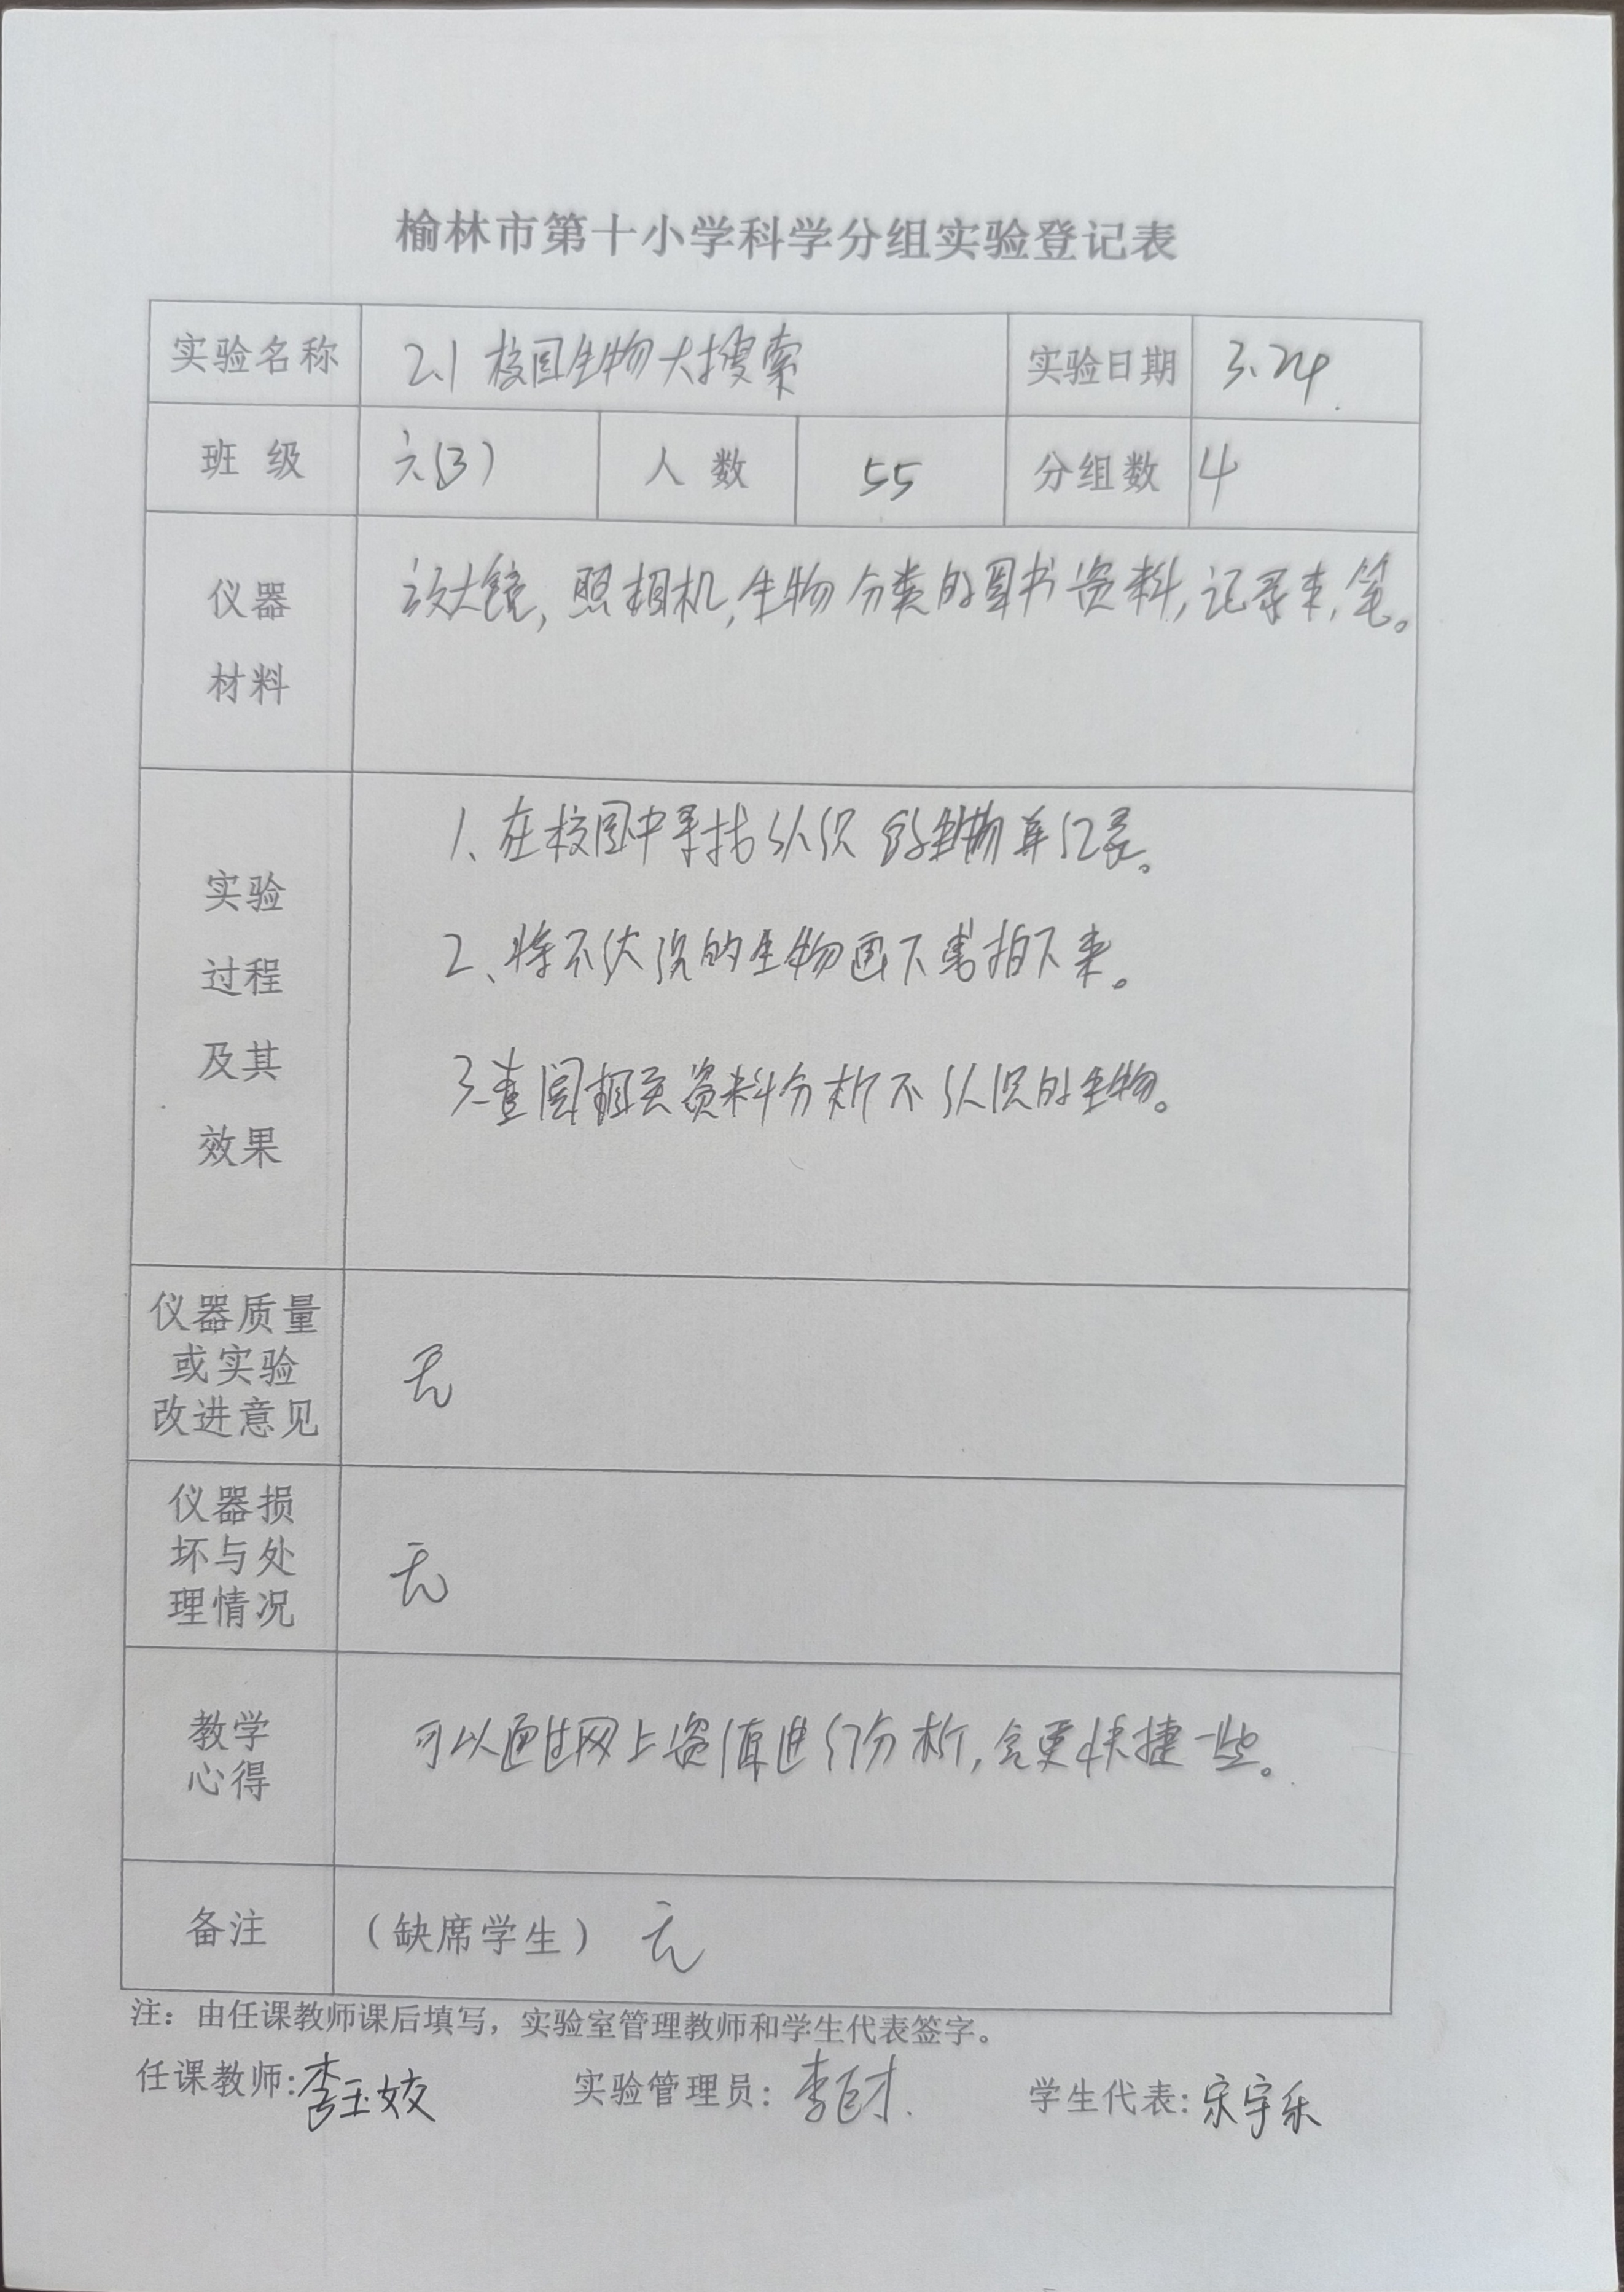 榆林市第十小学科学分组实验登记表
实验名称 2.1 校园生物大搜索 实验日期 3.24.
班 级 六(3) 人 数 55 分组数 4
仪器
材料
放大镜,照相机,生物分类的图书资料,记录本,笔。
实验
过程
及其
效果
1、在校园中寻找认识的生物并记录。
2、将不认识的生物画下或拍下来。
3.查阅相关资料分析不认识的生物。
仪器质量
或实验
改进意见
无
仪器损
坏与处
理情况
无
教学
心得
可以通过网上资源进行分析,会更快捷一些。
备注 (缺席学生) 无
注:由任课教师课后填写,实验室管理教师和学生代表签字。
任课教师:李玉姣 实验管理员:李 学生代表:宋宇乐